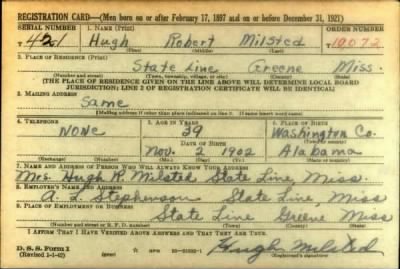 REGISTRATION CARD—(Men born on or after February 17, 1897 and on or before December 31, 1921)
SERIAL NUMBER 1. NAME (Print) ORDER NUMBER
T 421 Hugh Robert Milsted T 10072
(First) (Middle) (Last)
2. PLACE OF RESIDENCE (Print)
State Line Greene Miss.
(Number and street) (Town, township, village, or city) (County) (State)
[THE PLACE OF RESIDENCE GIVEN ON THE LINE ABOVE WILL DETERMINE LOCAL BOARD
JURISDICTION; LINE 2 OF REGISTRATION CERTIFICATE WILL BE IDENTICAL]
3. MAILING ADDRESS
Same
[Mailing address if other than place indicated on line 2. If same insert word same]
4. TELEPHONE 5. AGE IN YEARS 6. PLACE OF BIRTH
NONE 39 Washington Co.
DATE OF BIRTH (Town or county)
Nov. 2 1902 Alabama
(Exchange) (Number) (Mo.) (Day) (Yr.) (State or country)
7. NAME AND ADDRESS OF PERSON WHO WILL ALWAYS KNOW YOUR ADDRESS
Mrs. Hugh R. Milsted State Line, Miss.
8. EMPLOYER'S NAME AND ADDRESS
A. L. Stephenson State Line, Miss
9. PLACE OF EMPLOYMENT OR BUSINESS
State Line Greene Miss
(Number and street or R. F. D. number) (Town) (County) (State)
I AFFIRM THAT I HAVE VERIFIED ABOVE ANSWERS AND THAT THEY ARE TRUE.
D. S. S. Form 1
(Revised 1-1-42) Hugh Milsted
(Registrant's signature)